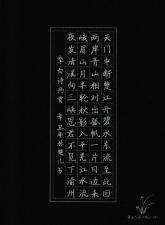 天门中断楚江开碧水东流至此回
两岸青山相对出孤帆一片日边来
峨眉山月半轮秋影入平羌江水流
夜发清溪向三峡思君不见下渝州
李白诗共赏 辛丑年林楚儿书